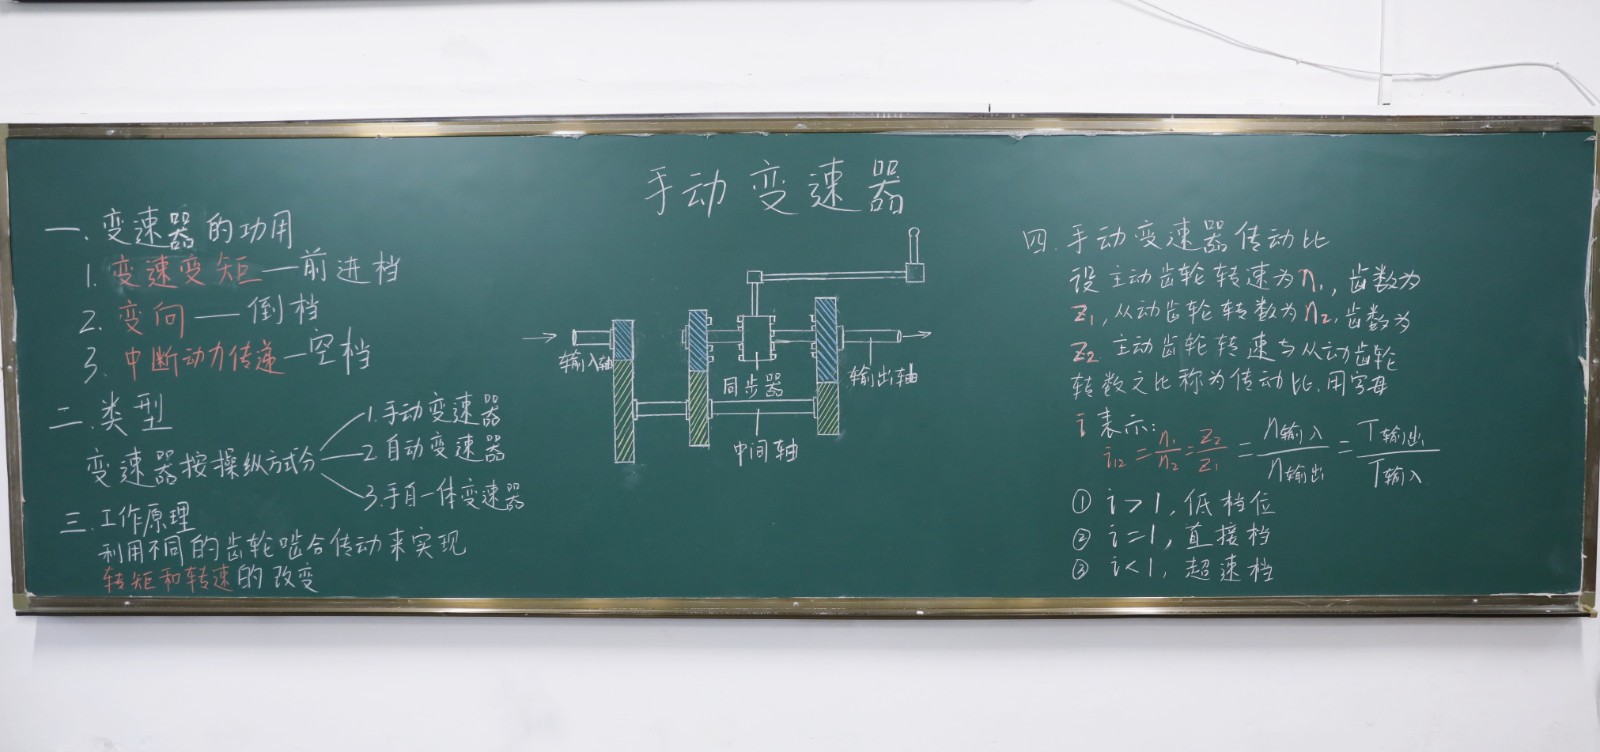 手动变速器
一.变速器的功用
1.变速变矩—前进档
2.变向——倒档
3.中断动力传递—空档
二.类型
变速器按操纵方式分
1.手动变速器
2自动变速器
3.手自一体变速器
三.工作原理
利用不同的齿轮啮合传动来实现
转矩和转速的改变
输入轴
同步器
输出轴
中间轴
四.手动变速器传动比
设主动齿轮转速为n₁,齿数为
z₁,从动齿轮转数为n₂,齿数为
z₂.主动齿轮转速与从动齿轮
转数之比称为传动比.用字母
i表示:
i₁₂=n₁/n₂=z₂/z₁=n输入/n输出=T输出/T输入
① i>1,低档位
② i=1,直接档
③ i<1,超速档